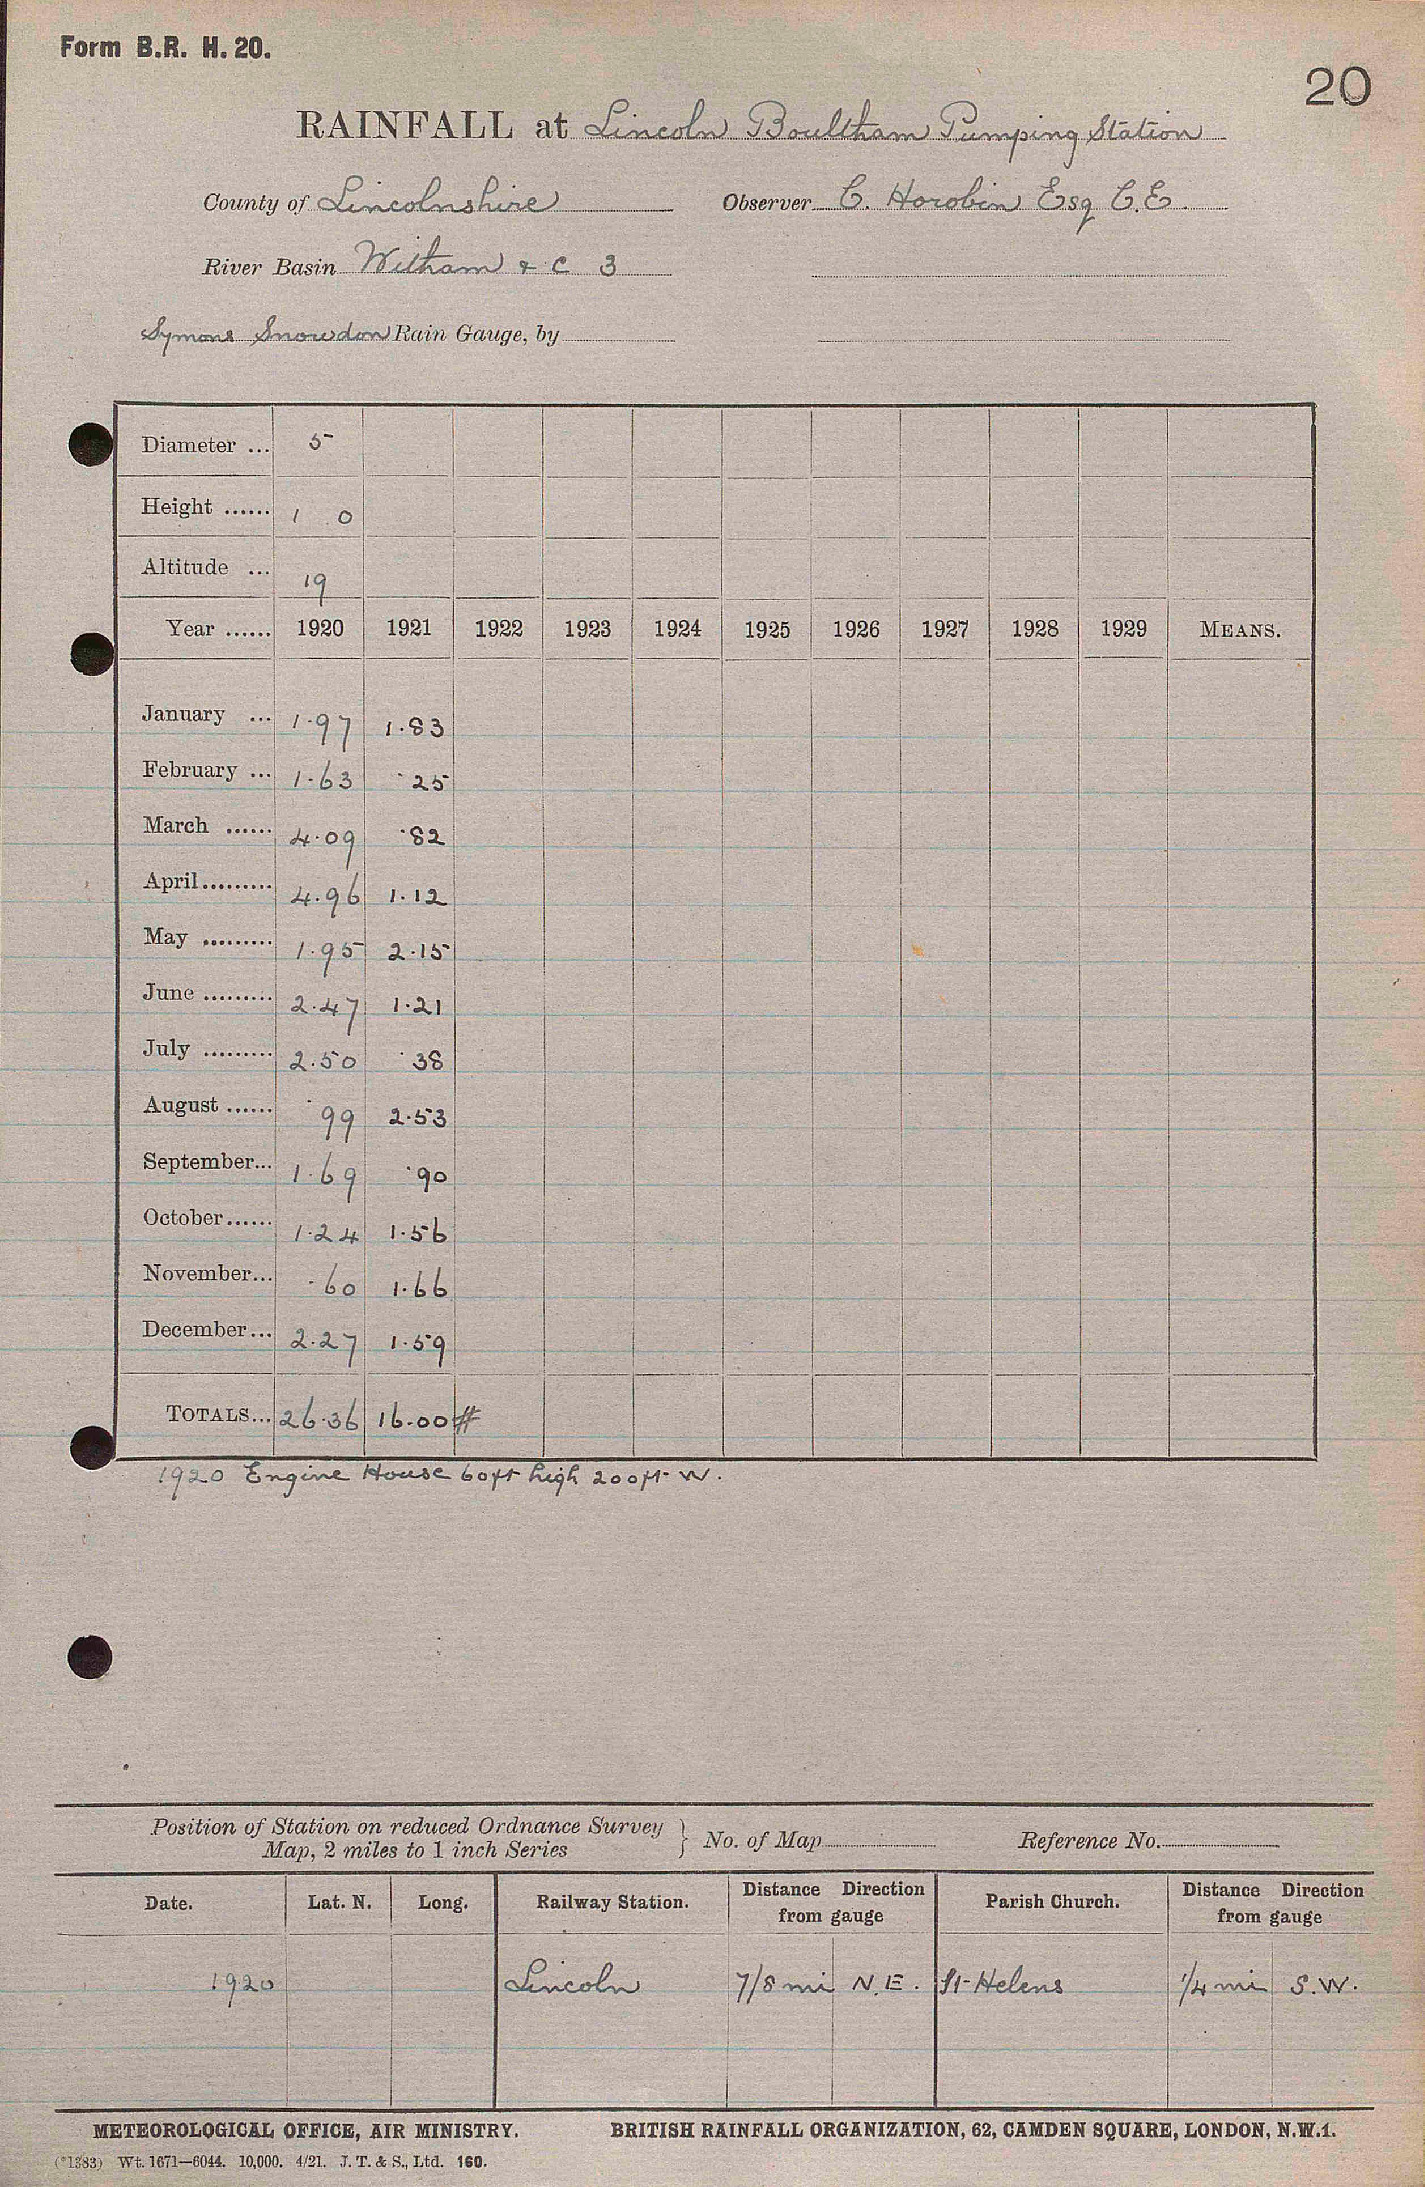 Form B.R. H. 20.
20
RAINFALL at Lincoln Boultham Pumping Station
County of Lincolnshire Observer C. Horobin Esq C.E.
River Basin Witham & C 3
Symons Snowdon Rain Gauge, by
Diameter ... 5
Height ...... 1 0
Altitude ... 19
Year ...... 1920 1921 1922 1923 1924 1925 1926 1927 1928 1929 MEANS.
January ... 1.97 1.83
February ... 1.63 .25
March ...... 4.09 .82
April......... 4.96 1.12
May ......... 1.95 2.15
June ......... 2.47 1.21
July ......... 2.50 .38
August ...... .99 2.53
September... 1.69 .90
October...... 1.24 1.56
November... .60 1.66
December... 2.27 1.59
TOTALS... 26.36 16.00 #
1920 Engine House 60ft high 200ft W.
Position of Station on reduced Ordnance Survey
Map, 2 miles to 1 inch Series } No. of Map Reference No.
Date. Lat. N. Long. Railway Station. Distance Direction from gauge Parish Church. Distance Direction from gauge
1920 Lincoln 7/8 mi N.E. St Helens 1/4 mi S.W.
METEOROLOGICAL OFFICE, AIR MINISTRY. BRITISH RAINFALL ORGANIZATION, 62, CAMDEN SQUARE, LONDON, N.W.1.
(*1383) Wt. 1671—6044. 10,000. 4/21. J. T. & S., Ltd. 160.